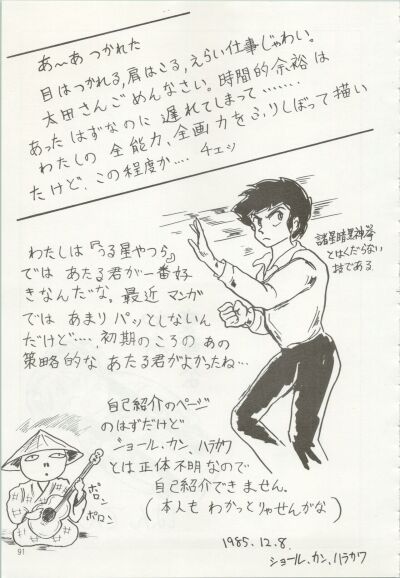 あ〜あ つかれた
目はつかれる,肩はこる,えらい仕事じゃわい。
太田さんごめんなさい。時間的余裕は
あったはずなのに 遅れてしまって………
わたしの 全能力、全画力をふりしぼって描い
たけど、この程度か…. チェッ
わたしは『うる星やつら』
では あたる君が一番好
きなんだな。最近 マンガ
では あまり パッとしないん
だけど…. 初期のころの あの
策略的な あたる君がよかったね…
諸星暗黒神拳
とはくだらない
技である
自己紹介のページ
のはずだけど
ショール、カン、ハラカワ
とは正体不明なので
自己紹介できません。
(本人も わかっとりゃせんがな)
ポロン
ポロン
1985.12.8.
ショール、カン、ハラカワ
91